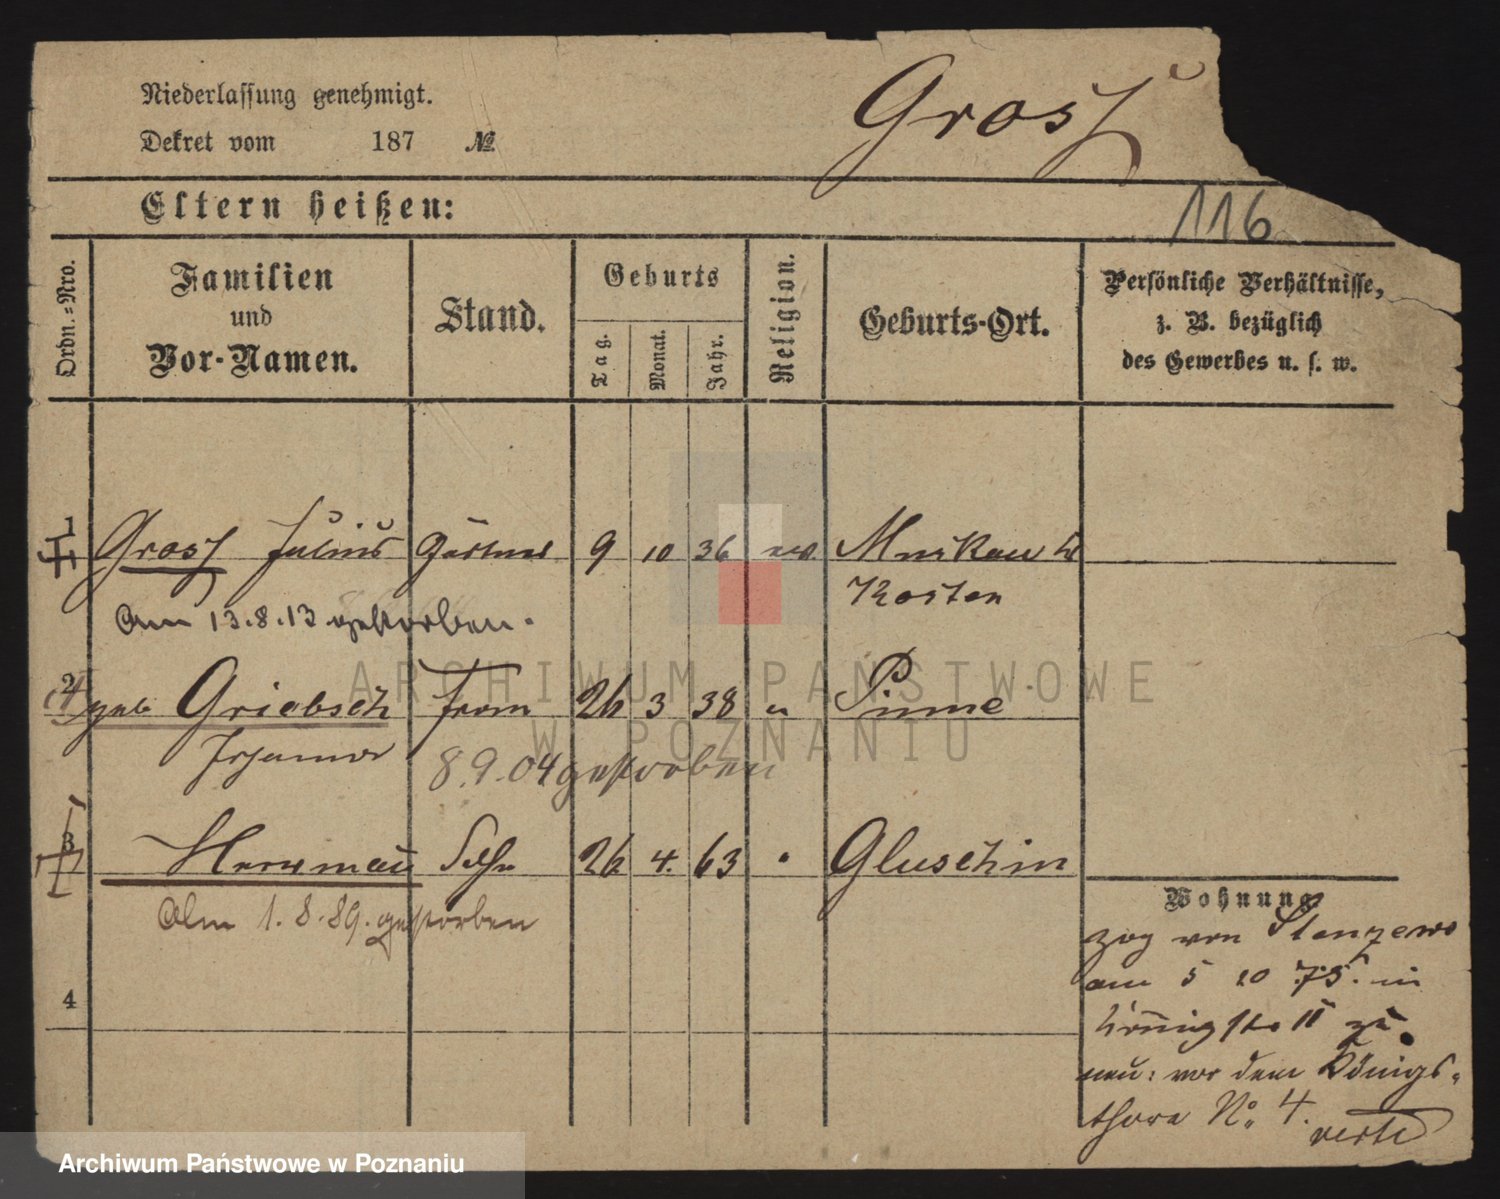 Niederlassung genehmigt.
Dekret vom 187 №
Grosz
Eltern heißen:
116
Ordn.-Nro.
Familien
und
Vor-Namen.
Stand.
Geburts
Tag.
Monat.
Jahr.
Religion.
Geburts-Ort.
Persönliche Verhältnisse,
z. B. bezüglich
des Gewerbes u. s. w.
1 Grosz Julius Gärtner 9 10 36 ev. Murkau
Kosten
Am 13.8.13 gestorben.
2 geb Griebsch Frau 26 3 38 " Pinne
8.9.04 gestorben
3 Herrmann Sohn 26 4. 63 " Gluschin
Am 1.8.89. gestorben
4
Wohnung
zog von Stenzewo
am 5 10 75. in
neu: vor dem Königs-
thore No. 4. verte
ARCHIWUM PAŃSTWOWE
W POZNANIU
Archiwum Państwowe w Poznaniu